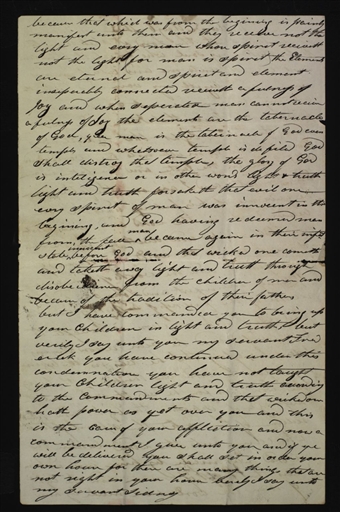 because that which was from the begining is plainly
manifest unto them and they receive not the
light and evry man whose spirit receiveth
not the light for man is spirit the Element
are eternal and spirit and element
inseperably connected receiveth a fulness of
Joy and when seperated man cannot receive
a fulness of Joy the element are the tabernacle
of God, yea man is the tabernacle of God even
temple and whatsoever temple is defiled God
shall distroy that temple, the glory of God
is inteligence or in other words light & truth
light and truth forsaketh that evil one
evry spirit of man was innocent in the
begining and God having redeemed man
from the fall man became again in their infant
state innocent before God and that wicked one cometh
and taketh away light and truth through
disobedience from the children of men and
because of the tradition of their fathers
but I have commanded you to bring up
your Children in light and truth but
verily I say unto you my servant Fre
erick you have continued under this
condemnation you have not taught
your Children light and truth according
to the commandments and that wicked one
hath power as yet over you and this
is the cause of your affliction and now a
commandment I give unto you and if ye
will be delivered you shall set in order your
own house for there are many things that are
not right in your house verily I say unto
my servant Sidney